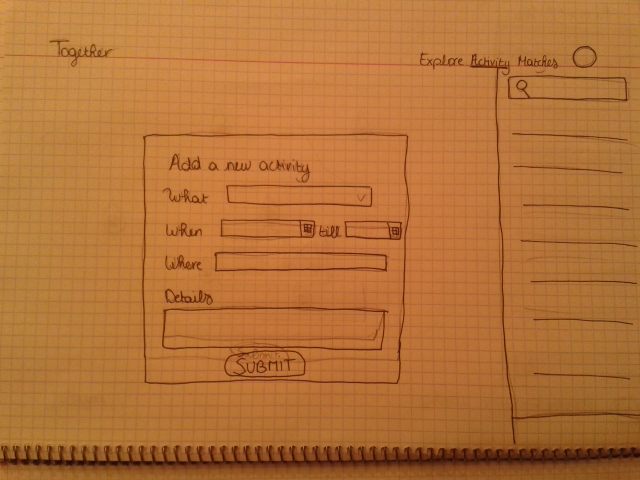 Together
Explore Activity Matches
Add a new activity
What
When till
Where
Details
SUBMIT